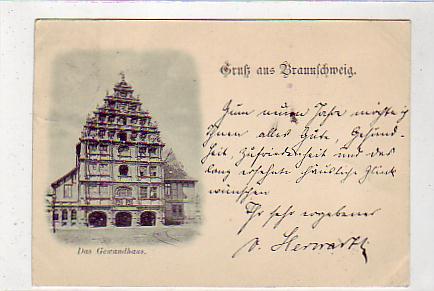 Gruß aus Braunschweig.
Zum neuen Jahr möchte i
Ihnen alles Gute, Gesund-
heit, Zufriedenheit und das
lang ersehnte häusliche Glück
wünschen
Ihr sehr ergebener
v. Herwarth
Das Gewandhaus.